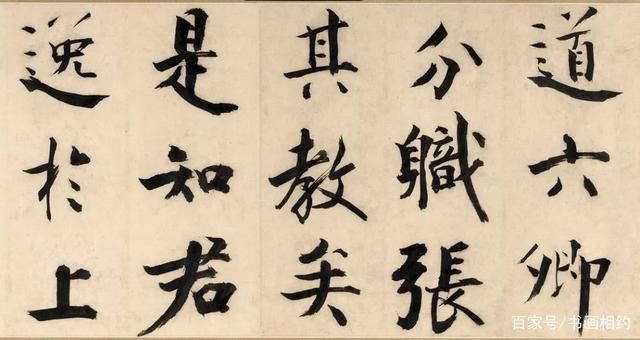 道六卿
分職張
其教矣
是知君
逸於上
百家号/书画相约